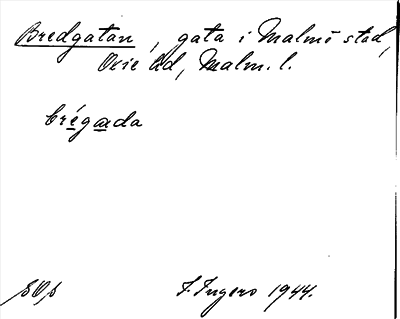 Bredgatan, gata i Malmö stad,
Oxie hd, Malm. l.
brégada
F. Ingers 1944.